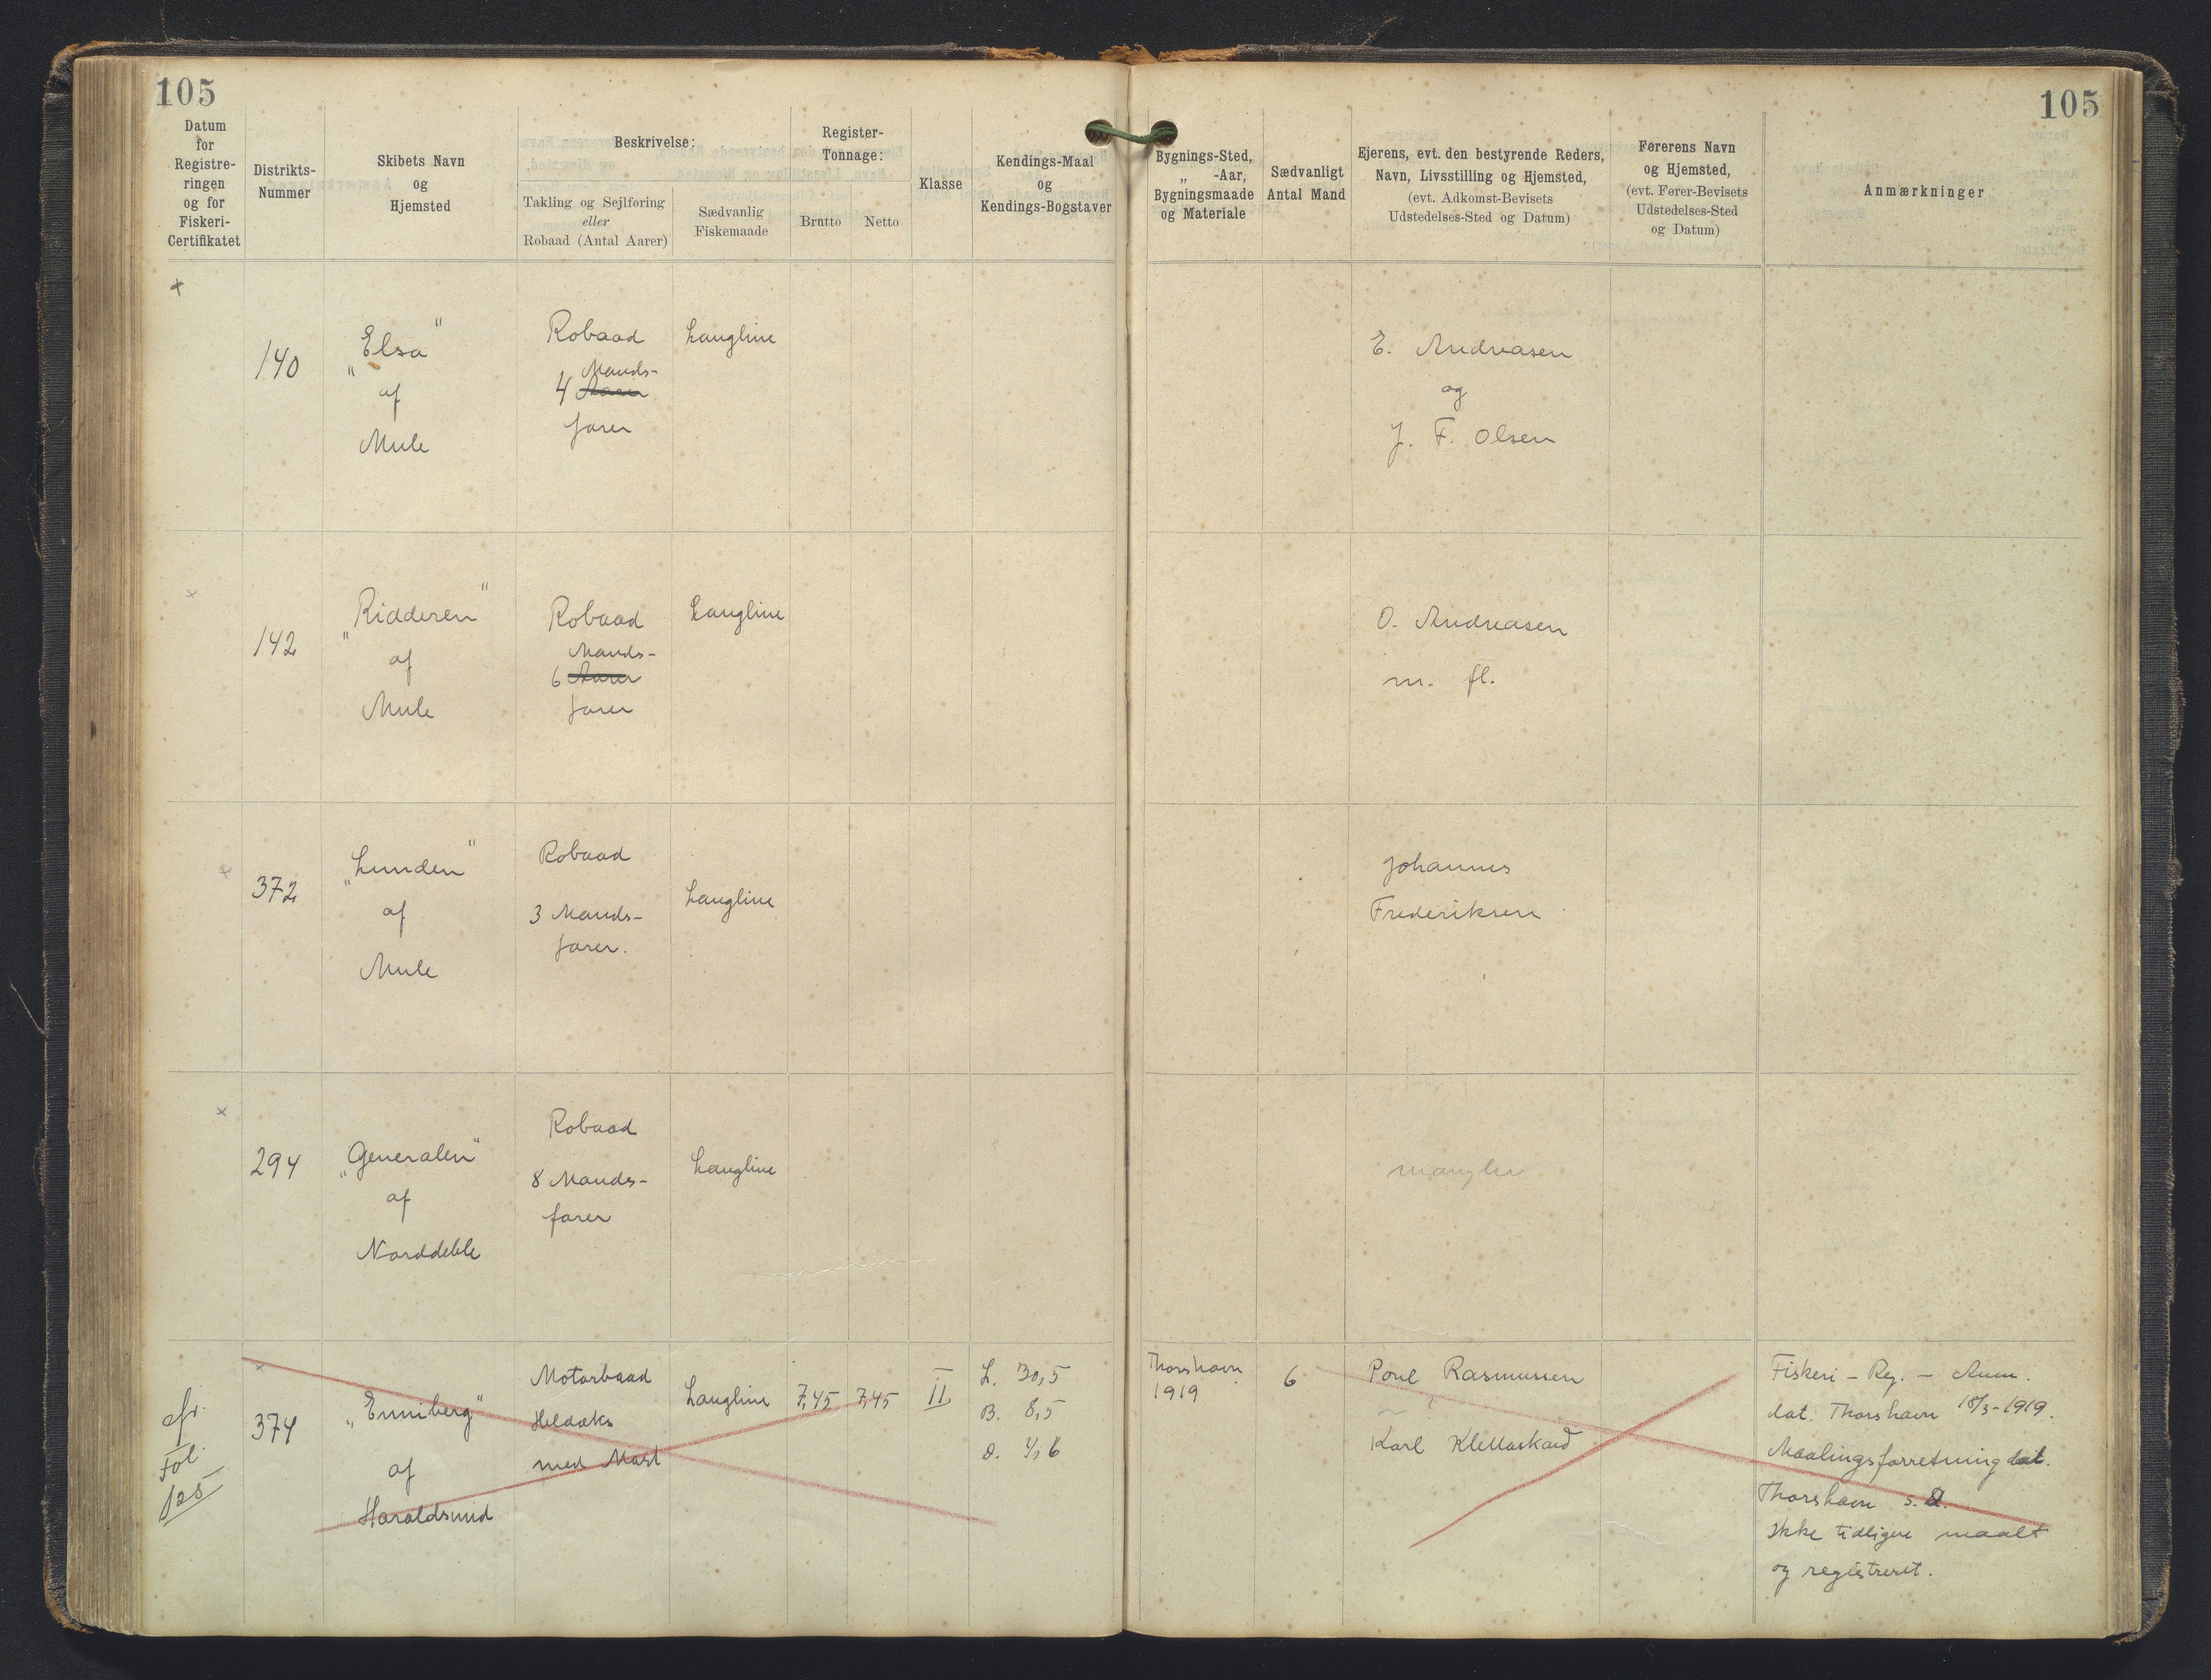 105
105
Datum
for
Registre-
ringen
og for
Fiskeri-
Certifikatet
Distrikts-
Nummer
Skibets Navn
og
Hjemsted
Beskrivelse:
Takling og Sejlføring
eller
Robaad (Antal Aarer)
Sædvanlig
Fiskemaade
Register-
Tonnage:
Brutto
Netto
Klasse
Kendings-Maal
og
Kendings-Bogstaver
Bygnings-Sted,
„ -Aar,
Bygningsmaade
og Materiale
Sædvanligt
Antal Mand
Ejerens, evt. den bestyrende Reders,
Navn, Livsstilling og Hjemsted,
(evt. Adkomst-Bevisets
Udstedelses-Sted og Datum)
Førerens Navn
og Hjemsted,
(evt. Fører-Bevisets
Udstedelses-Sted
og Datum)
Anmærkninger
x
140
„Elsa"
af
Mule
Robaad
Mands-
4 Aarer
farer
Langline
E. Andreasen
og
J. F. Olsen
x
142
„Ridderen"
af
Mule
Robaad
Mands-
6 Aarer
farer
Langline
O. Andreasen
m. fl.
x
372
„Lunden"
af
Mule
Robaad
3 Mands-
farer.
Langline
Johannes
Frederiksen
x
294
„Generalen"
af
Norddeble
Robaad
8 Mands-
farer
Langline
mangler
x
cfr.
Fol.
125
374
„Enniberg"
af
Haraldsund
Motorbaad
Heldæks
med Mast
Langline
7,45
7,45
II
L. 30,5
B. 8,5
D. 4,6
Thorshavn
1919
6
Poul Rasmussen
Karl Klettaskard
Fiskeri-Reg.-Anm.
dat. Thorshavn 18/3-1919.
Maalingsforretning dat.
Thorshavn s. D.
Ikke tidligere maalt
og registreret.